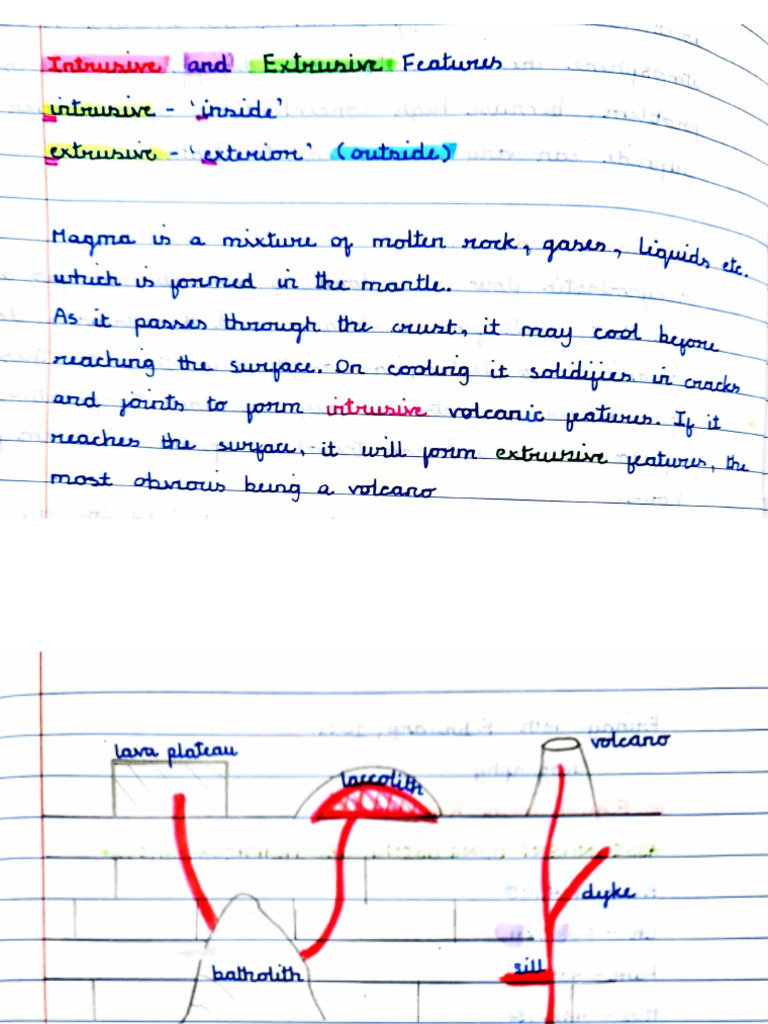 Intrusive and Extrusive Features
intrusive - 'inside'
extrusive - 'exterior' (outside)
Magma is a mixture of molten rock, gases, liquids etc.
which is formed in the mantle.
As it passes through the crust, it may cool before
reaching the surface. On cooling it solidifies in cracks
and joints to form intrusive volcanic features. If it
reaches the surface, it will form extrusive features, the
most obvious being a volcano
lava plateau
laccolith
volcano
dyke
sill
batholith